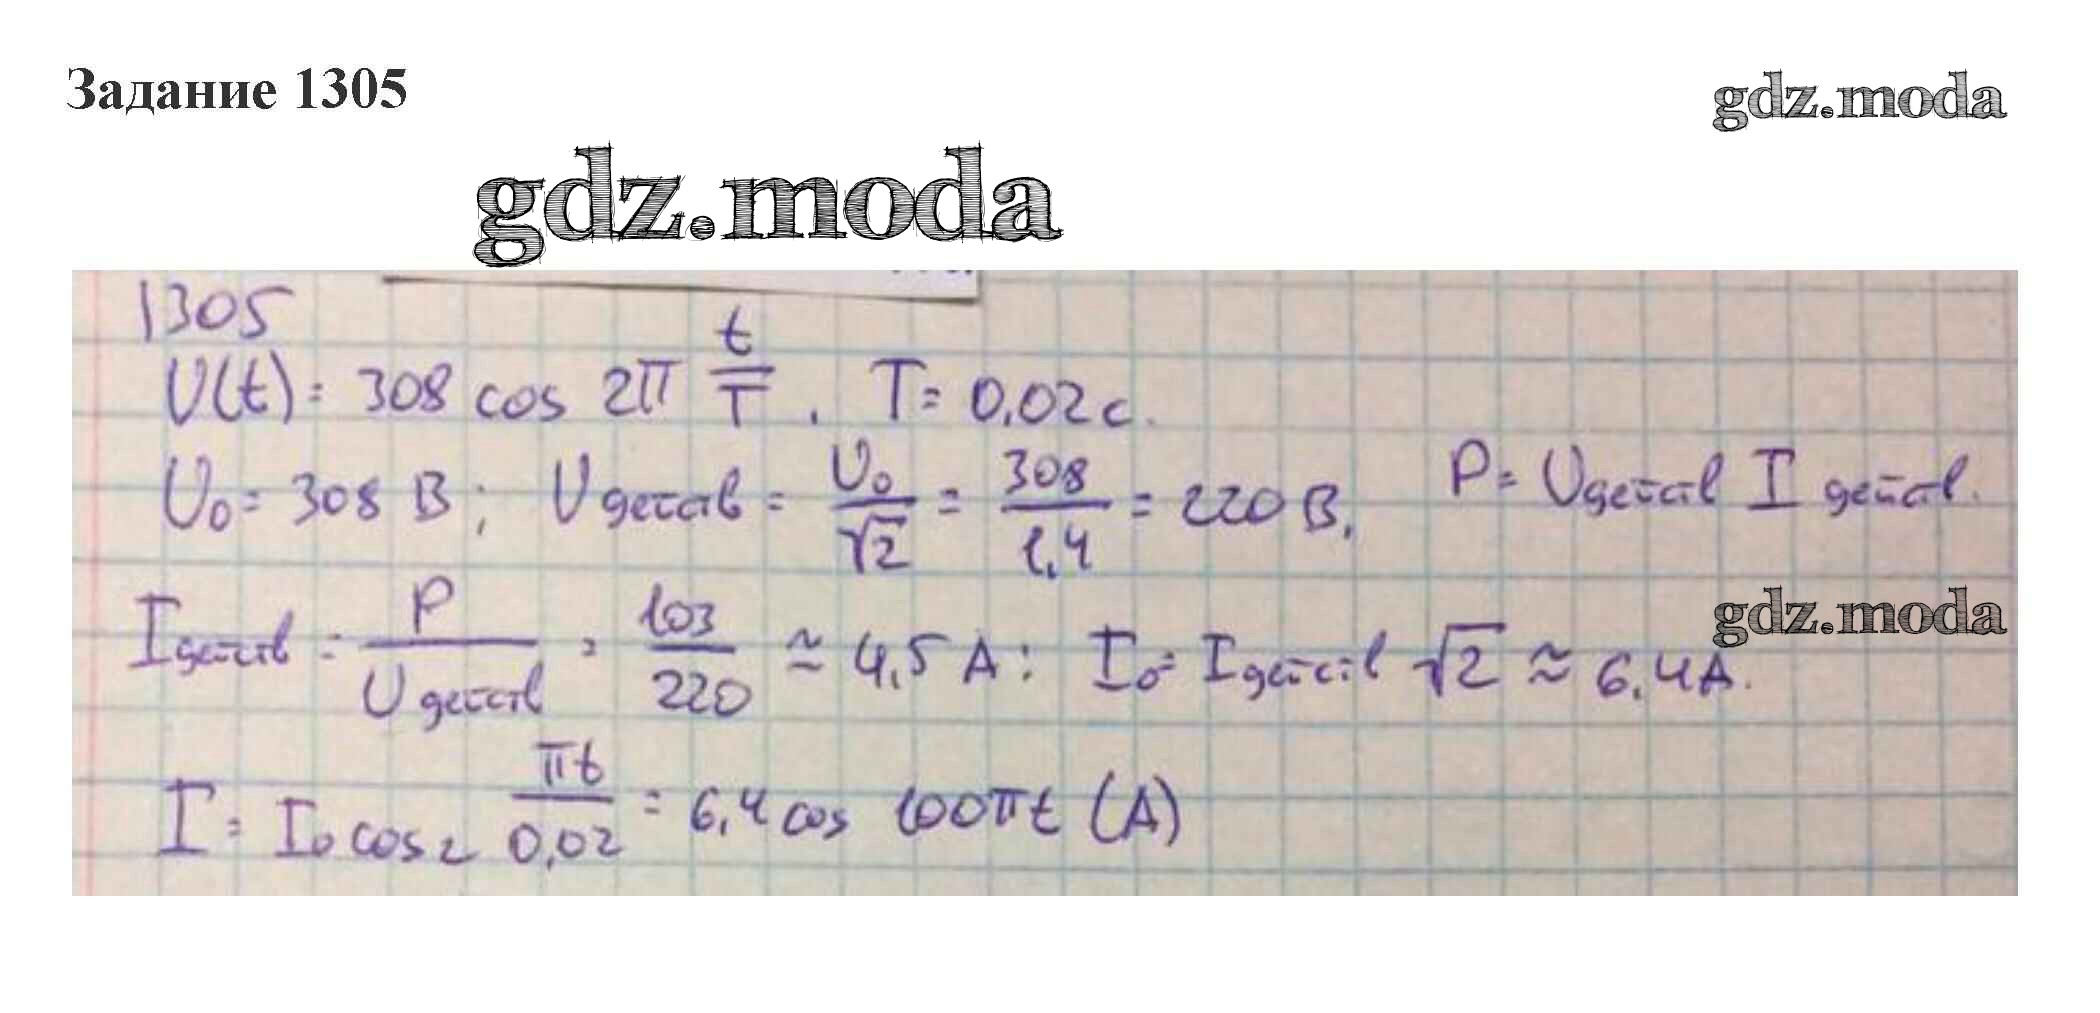 Задание 1305
gdz.moda
gdz.moda
1305
U(t) = 308 cos 2π t/T . T = 0,02 с.
U₀ = 308 В ; U действ = U₀/√2 = 308/1,4 = 220 В. P = U действ I действ.
I действ = P/U действ = 103/220 ≈ 4,5 А : I₀ = I действ √2 ≈ 6,4 А.
gdz.moda
I = I₀ cos 2 πt/0,02 = 6,4 cos 100πt (А)